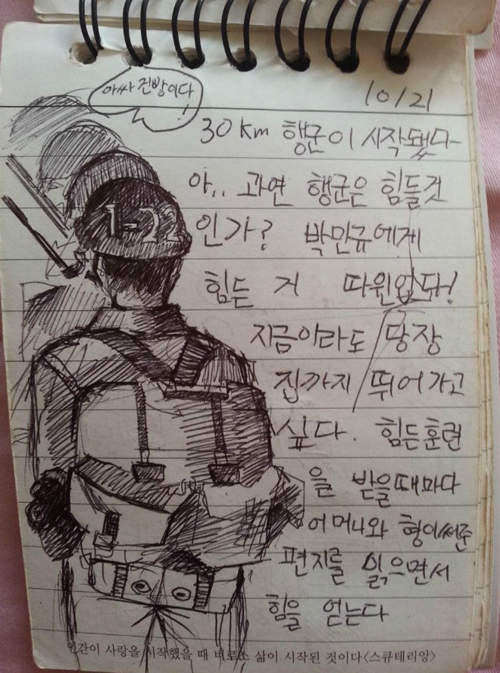 아싸 건빵이다!
10/21
30km 행군이 시작됐다
아.. 과연 행군은 힘들것
인가? 박민규에게
힘든 거 따윈없다!
지금이라도 당장
집까지 뛰어가고
싶다. 힘든훈련
을 받을때마다
어머니와 형이써준
편지를 읽으면서
힘을 얻는다
1-12
인간이 사랑을 시작했을 때 비로소 삶이 시작된 것이다<스큐테리앙>